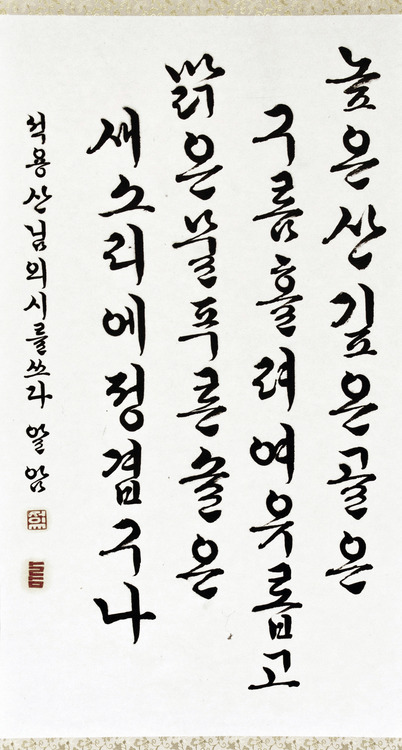 높은산깊은골은
구름흘려여유롭고
맑은물푸른솔은
새소리에정겹구나
석용산님의시를쓰다 알암